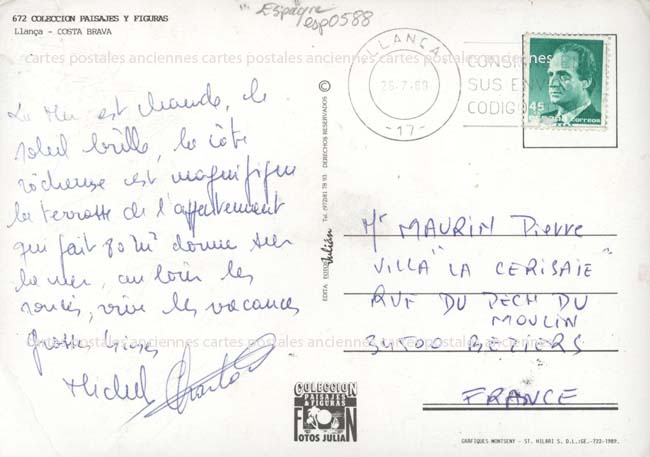 672 COLECCION PAISAJES Y FIGURAS
Llança - COSTA BRAVA
Espagne
esp0588
LLANÇA
26-7-89
-17-
CONSI
SUS ENV
CODIGO
45
españa correos
cartes postales anciennes cartes postales anciennes cartes postales anciennes cartes postales anciennes
La Mer est chaude, le
soleil brille, la côte
rocheuse est magnifique
la terrasse de l'appartement
qui fait 90 M² donne sur
la mer, au loin les
soucis, vive les vacances
Grosses bises
Michel
EDITA FOTOS Julián Tel. (972) 81 78 93 DERECHOS RESERVADOS ©
Mr MAURIN Pierre
VILLA "LA CERISAIE
RUE DU PECH DU
MOULIN
34500 BEZIERS
FRANCE
cartes postales anciennes cartes postales anciennes cartes postales anciennes cartes postales anciennes
COLECCION
PAISAJES
& FIGURAS
FOTOS JULIAN
GRAFIQUES MONTSENY - ST. HILARI S. D.L.:GE.-722-1989.